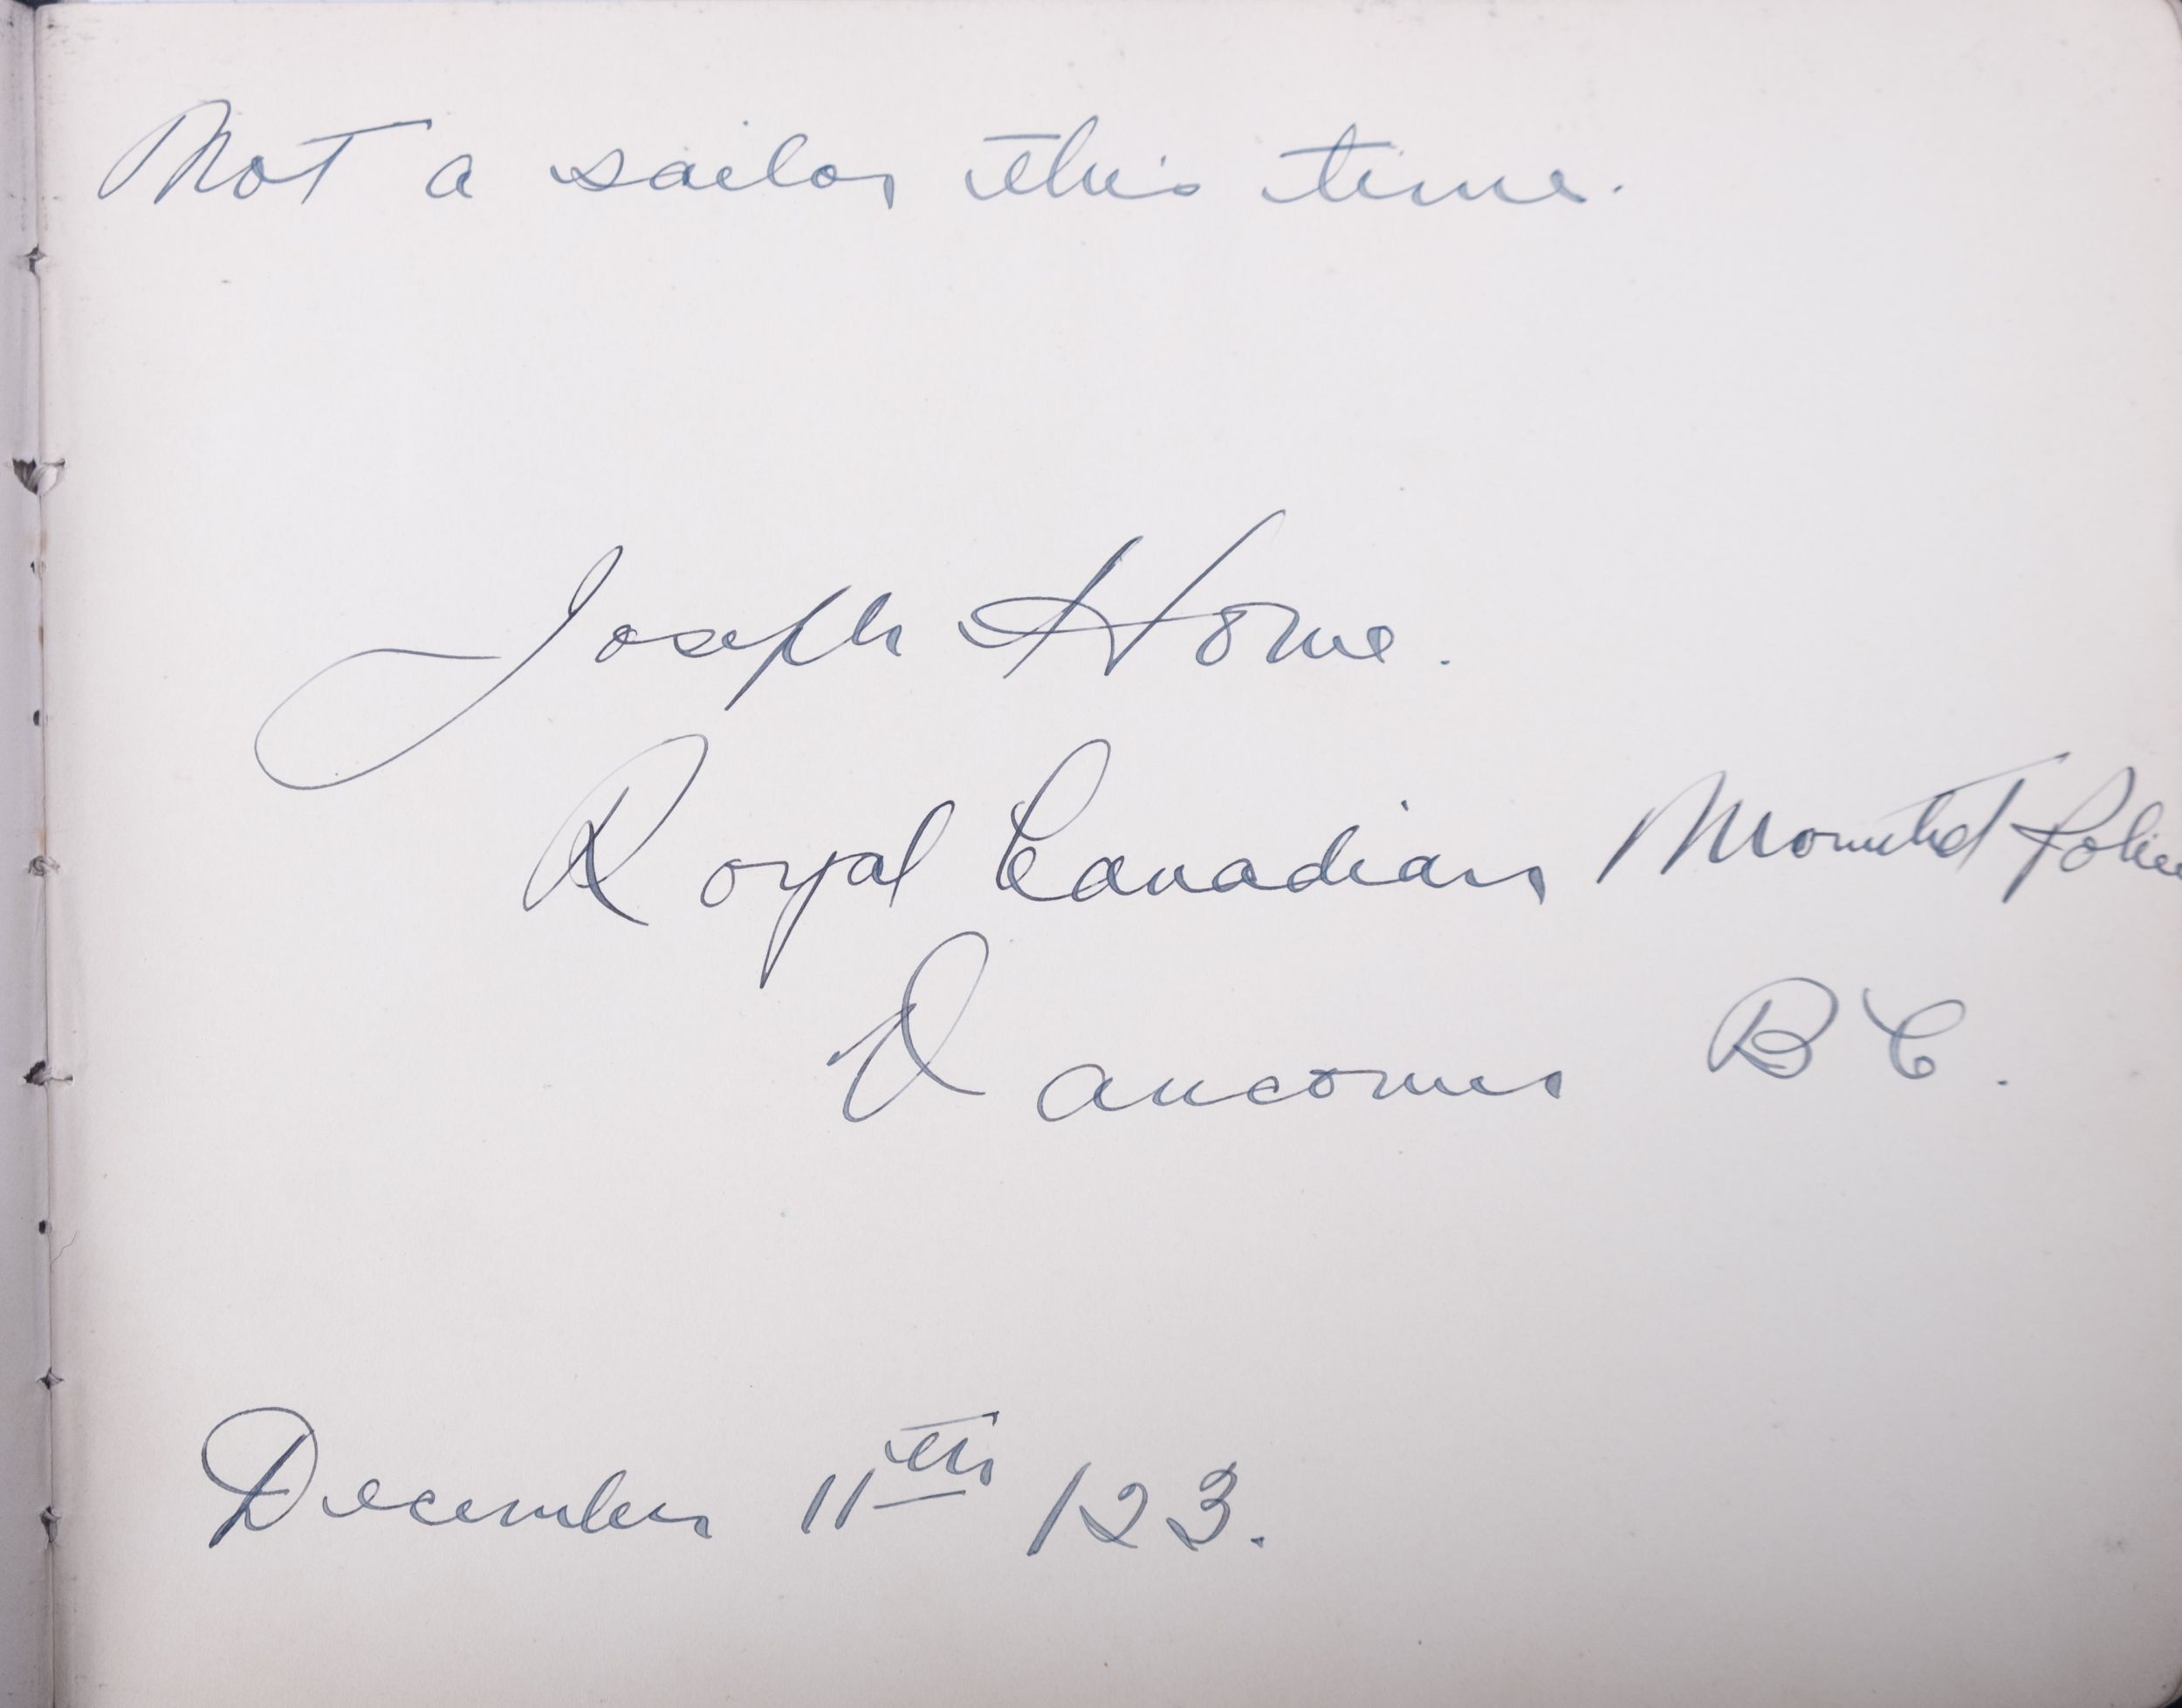 Not a sailor this time.
Joseph Howe.
Royal Canadian Mounted Police
Vancouver B C.
December 11th /23.